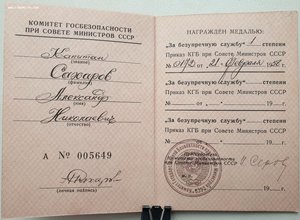 КОМИТЕТ ГОСБЕЗОПАСНОСТИ
ПРИ СОВЕТЕ МИНИСТРОВ СССР
Капитан
(звание)
Сахаров
(фамилия)
Александр
(имя)
Николаевич
(отчество)
А № 005649
(личная подпись)
НАГРАЖДЕН МЕДАЛЬЮ:
„За безупречную службу“ 1 степени
Приказ КГБ при Совете Министров СССР
№ 0172 от „21“ февраля 1958 г.
„За безупречную службу“ степени
Приказ КГБ при Совете Министров СССР
№ от „ “ 19 г.
„За безупречную службу“ степени
Приказ КГБ при Совете Министров СССР
№ от „ “ 19 г.
Председатель
Комитета госбезопасности
при Совете Министров СССР
И. Серов